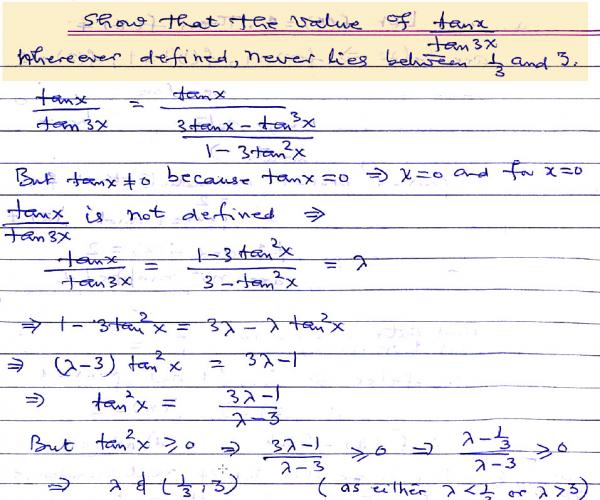 Show that the value of tanx/tan3x
whereever defined, never lies between 1/3 and 3.
tanx/tan3x = tanx/((3tanx - tan³x)/(1-3tan²x))
But tanx≠0 because tanx=0 ⇒ x=0 and for x=0
tanx/tan3x is not defined ⇒
tanx/tan3x = (1-3tan²x)/(3-tan²x) = λ
⇒ 1-3tan²x = 3λ - λ tan²x
⇒ (λ-3) tan²x = 3λ-1
⇒ tan²x = (3λ-1)/(λ-3)
But tan²x ≥ 0 ⇒ (3λ-1)/(λ-3) ≥ 0 ⇒ (λ-1/3)/(λ-3) ≥ 0
⇒ λ ∉ (1/3, 3) (as either λ<1/3 or λ>3)